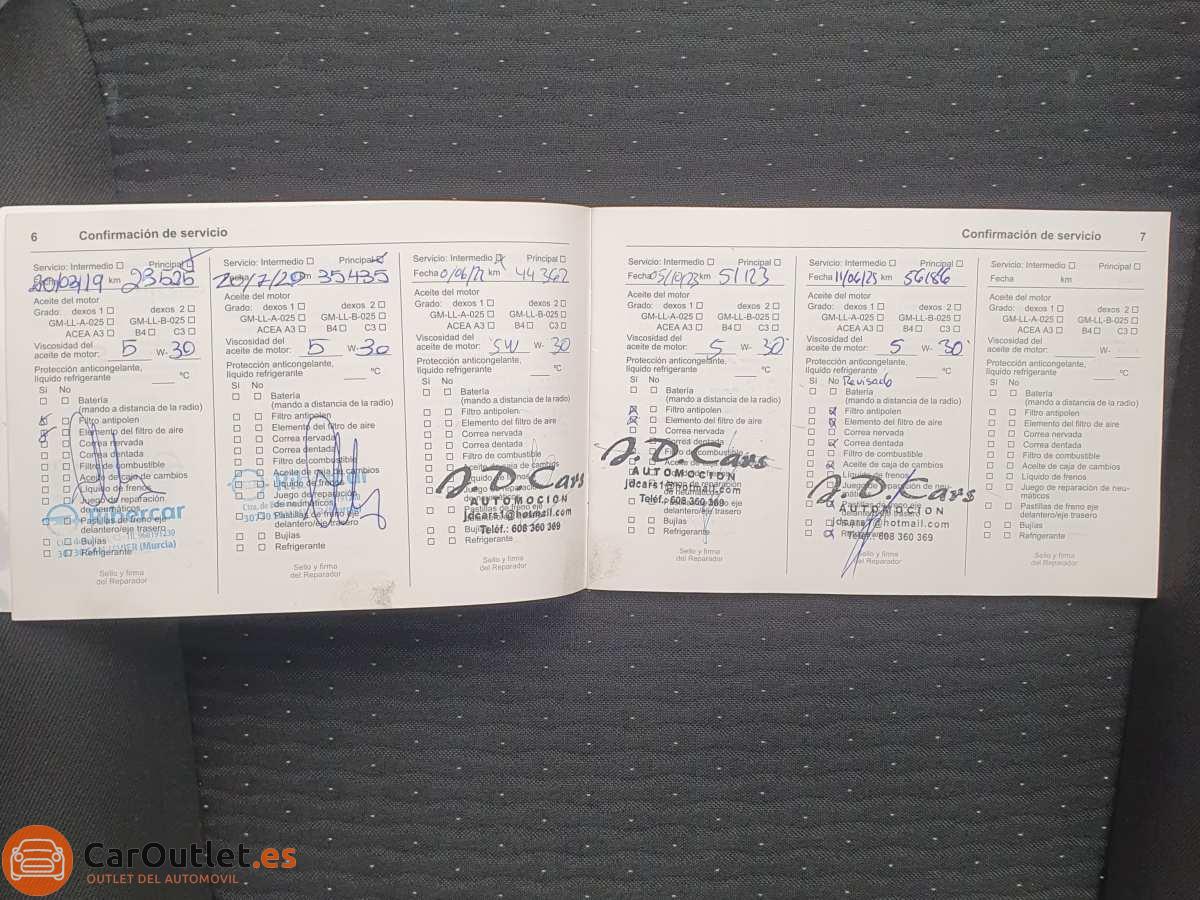 6 Confirmación de servicio
Servicio: Intermedio Principal
20/03/19 km 23525
Aceite del motor
Grado: dexos 1 dexos 2
GM-LL-A-025 GM-LL-B-025
ACEA A3 B4 C3
Viscosidad del
aceite de motor: 5 W- 30
Protección anticongelante,
líquido refrigerante °C
Sí No
Batería
(mando a distancia de la radio)
Filtro antipolen
Elemento del filtro de aire
Correa nervada
Correa dentada
Filtro de combustible
Aceite de caja de cambios
Líquido de frenos
Juego de reparación
de neumáticos
Pastillas de freno eje
delantero/eje trasero
Bujías
Refrigerante
(Murcia)
Sello y firma
del Reparador
Servicio: Intermedio Principal
Fecha 20/7/20 km 35435
Aceite del motor
Grado: dexos 1 dexos 2
GM-LL-A-025 GM-LL-B-025
ACEA A3 B4 C3
Viscosidad del
aceite de motor: 5 W- 30
Protección anticongelante,
líquido refrigerante °C
Sí No
Batería
(mando a distancia de la radio)
Filtro antipolen
Elemento del filtro de aire
Correa nervada
Correa dentada
Filtro de combustible
Aceite de caja de cambios
Líquido de frenos
Juego de reparación
de neumáticos
Pastillas de freno eje
delantero/eje trasero
Bujías
Refrigerante
Sello y firma
del Reparador
Servicio: Intermedio Principal
Fecha 01/06/22 km 44362
Aceite del motor
Grado: dexos 1 dexos 2
GM-LL-A-025 GM-LL-B-025
ACEA A3 B4 C3
Viscosidad del
aceite de motor: 5W W- 30
Protección anticongelante,
líquido refrigerante °C
Sí No
Batería
(mando a distancia de la radio)
Filtro antipolen
Elemento del filtro de aire
Correa nervada
Correa dentada
Filtro de combustible
Aceite de caja de cambios
Líquido de frenos
J.D.Cars
AUTOMOCION
jdcars1@hotmail.com
Teléf.: 608 360 369
Pastillas de freno eje
Refrigerante
Sello y firma
del Reparador
Confirmación de servicio 7
Servicio: Intermedio Principal
Fecha 05/10/23 km 51123
Aceite del motor
Grado: dexos 1 dexos 2
GM-LL-A-025 GM-LL-B-025
ACEA A3 B4 C3
Viscosidad del
aceite de motor: 5 W- 30
Protección anticongelante,
líquido refrigerante °C
Sí No
Batería
(mando a distancia de la radio)
Filtro antipolen
Elemento del filtro de aire
Correa nervada
Correa dentada
J.D.Cars
AUTOMOCION
jdcars1@hotmail.com
Teléf.: 608 360 369
Pastillas de freno eje
delantero/eje trasero
Bujías
Refrigerante
Sello y firma
del Reparador
Servicio: Intermedio Principal
Fecha 11/06/25 km 56186
Aceite del motor
Grado: dexos 1 dexos 2
GM-LL-A-025 GM-LL-B-025
ACEA A3 B4 C3
Viscosidad del
aceite de motor: 5 W- 30
Protección anticongelante,
líquido refrigerante °C
Sí No Revisado
Batería
(mando a distancia de la radio)
Filtro antipolen
Elemento del filtro de aire
Correa nervada
Correa dentada
Filtro de combustible
Aceite de caja de cambios
Líquido de frenos
Juego de reparación de neu-
J.D.Cars
AUTOMOCION
jdcars1@hotmail.com
Teléf.: 608 360 369
Sello y firma
del Reparador
Servicio: Intermedio Principal
Fecha km
Aceite del motor
Grado: dexos 1 dexos 2
GM-LL-A-025 GM-LL-B-025
ACEA A3 B4 C3
Viscosidad del
aceite de motor: W-
Protección anticongelante,
líquido refrigerante °C
Sí No
Batería
(mando a distancia de la radio)
Filtro antipolen
Elemento del filtro de aire
Correa nervada
Correa dentada
Filtro de combustible
Aceite de caja de cambios
Líquido de frenos
Juego de reparación de neu-
máticos
Pastillas de freno eje
delantero/eje trasero
Bujías
Refrigerante
Sello y firma
del Reparador
CarOutlet.es
OUTLET DEL AUTOMOVIL